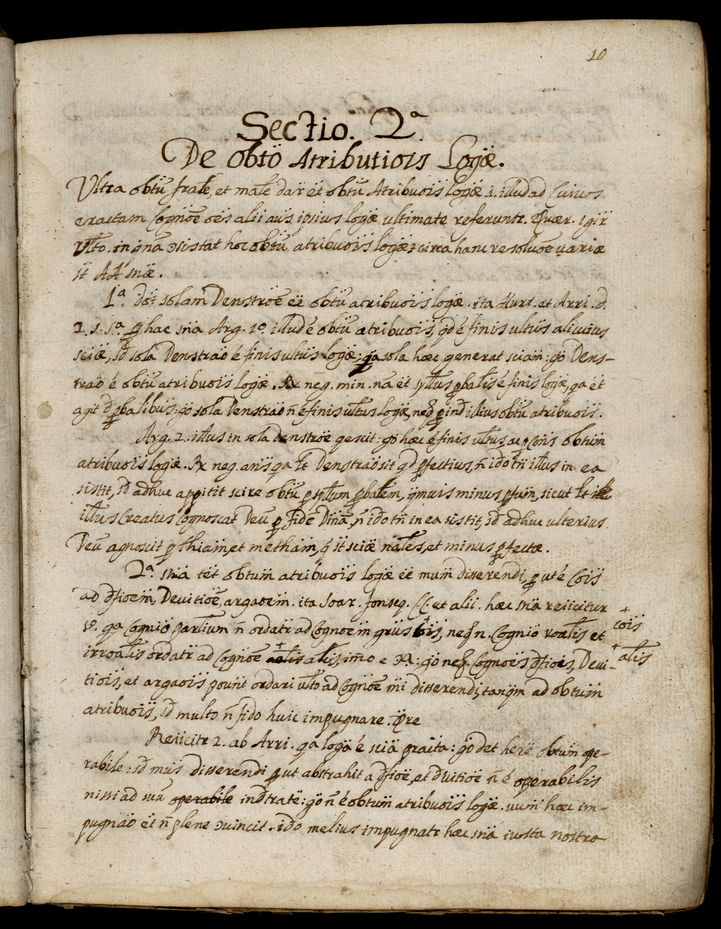 10
Sectio. 2ª
De obto Atributiois Logæ.
Ultra obtū frale, et male dar et obtū Atribuois logæ .i. illud ad cuius
exactam cognoē oēs alii aus ipsius logæ ultimate referuntr. Quær. igir
ulto. in qna consistat hoc obtū atribuois logæ; circa hanc resoluoē variæ
st AA snæ.
1ª dot solam Denstroē eē obtū atribuois logæ. ita Hurt. et Arri. d.
2. s. 1ª hac sna Arg. 1º illud é obtū atribuois, qd é finis ultus alicuius
sciæ, sd sola Denstrao é finis ultus logæ; qa sola hæc generat sciam: go Dens-
trao é obtū atribuois logæ. Rx neg. min. na et syllus pbalis é finis logæ, qa et
agit d pbalibus: go sola Denstrao ñ é finis ultus logæ, neq pind illius obtū atribuois.
Arg. 2. illus in sola denstroē qescit: go hæc é finis ultus, ac cois obtum
atribuois logæ. Rx neg. ans qa lt Denstrao sit qd pfectius, ñ ido tñ illus in ea
sistit, sd adhuc appitit scire obtū p syllum pbalem, qmuis minus pfum, sicut lt
illus creatus cognoscat Deū p fidē Dinā, ñ ido tñ in ea sistit, sd adhuc ulterius
Deū agnoscit p thiam, et metham, q st sciæ nales, et minus pfectæ.
2ª sna tet obtum atribuois logæ eē mum disserendi, put é cois
ad dfioem, Devitioē, argaoem. ita Soar. fonseq. CC. et alii. hæc sna reiicitur
1º. qa cognio partium ñ ordatr ad cognoem grus + ois, neq n. cognio roalis et
cois
irroalis ordatr ad cognoē + alis, imo e xª: go neq cognoēs dfiois, Devi-
+ alis
tiois, et argaois pount ordari ulto ad cognoē mi disserendi, tanqm ad obtum
atribuois, sd multo ñ fido huic impugnare. qre
Reiicitr 2. ab Arri. qa loga é scia practa: go det here obtum ope-
rabile: sd mus disserendi put abstrahit a dfioē, et Dvitioē ñ é operabilis
nisi ad suū operabile indtrate: go ñ é obtum atribuois logæ. uum hæc im-
pugnao et ñ plene convincit. ido melius impugnatr hæc sna iuxta nostra